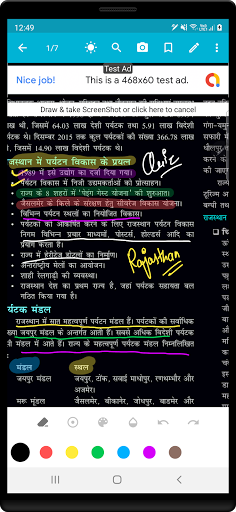 12:49
1/7
Test Ad
Nice job!
This is a 468x60 test ad.
Draw & take ScreenShot or click here to cancel
था, जिसमें 64.03 लाख देशी पर्यटक तथा 5.91 लाख विदेशी
थे। दिसम्बर 2015 तक कुल पर्यटकों की संख्या 366.78 लाख
जिसमें 14.90 लाख विदेशी पर्यटक थे।
में पर्यटन विकास के प्रयत्न
Quiz
1989 में इसे उद्योग का दर्जा दिया गया।
पर्यटन विकास में निजी उद्यमकर्ताओं को प्रोत्साहन।
राज्य के 8 शहरों में 'पेइंग गेस्ट योजना' की शुरुआत।
जैसलमेर के किले के संरक्षण हेतु सीवरेज विकास योजना।
विभिन्न पर्यटन स्थलों का नियोजित विकास।
पर्यटकों को आकर्षित करने के लिए राजस्थान पर्यटन विकास
निगम विभिन्न प्रचार माध्यमों, पोस्टर्स, होर्ल्डर्स आदि का
प्रयोग करता है।
राज्य में हेरीटेज होटलों का निर्माण।
अन्तर्राष्ट्रीय मेलों का आयोजन।
शाही रेलगाड़ी की व्यवस्था।
Rajasthan
राजस्थान देश का प्रथम राज्य है, जहां पर्यटक सहायता बल
गठित किया गया है।
पर्यटक मण्डल
राजस्थान में सात महत्वपूर्ण पर्यटन मंडल हैं। पर्यटकों की सर्वाधिक
जयपुर मंडल के अन्तर्गत आती है। सबसे अधिक विदेशी पर्यटक
मंडल में आते हैं। राज्य के महत्वपूर्ण पर्यटक मंडल निम्नलिखित
मंडल स्थल
जयपुर मंडल जयपुर, टोंक, सवाई माधोपुर, रणथम्भौर और
अजमेर।
मरू मंडल जैसलमेर, बीकानेर, जोधपुर, बाडमेर और